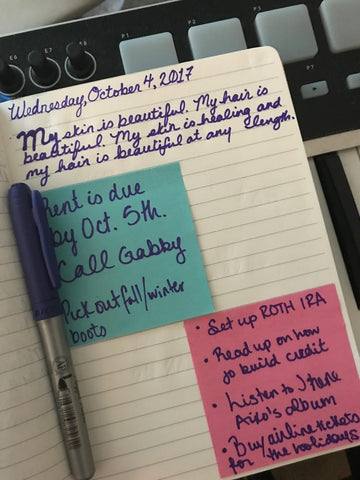 E6
E7
E8
P1
P2
P3
P7
Wednesday, October 4, 2017
My skin is beautiful. My hair is
beautiful. My skin is healing and
my hair is beautiful at any length.
Rent is due
by Oct. 5th.
Call Gabby
Pick out fall/winter
boots
• Set up ROTH IRA
• Read up on how
to build credit
• Listen to
album
• Buy airline tickets
for the holidays